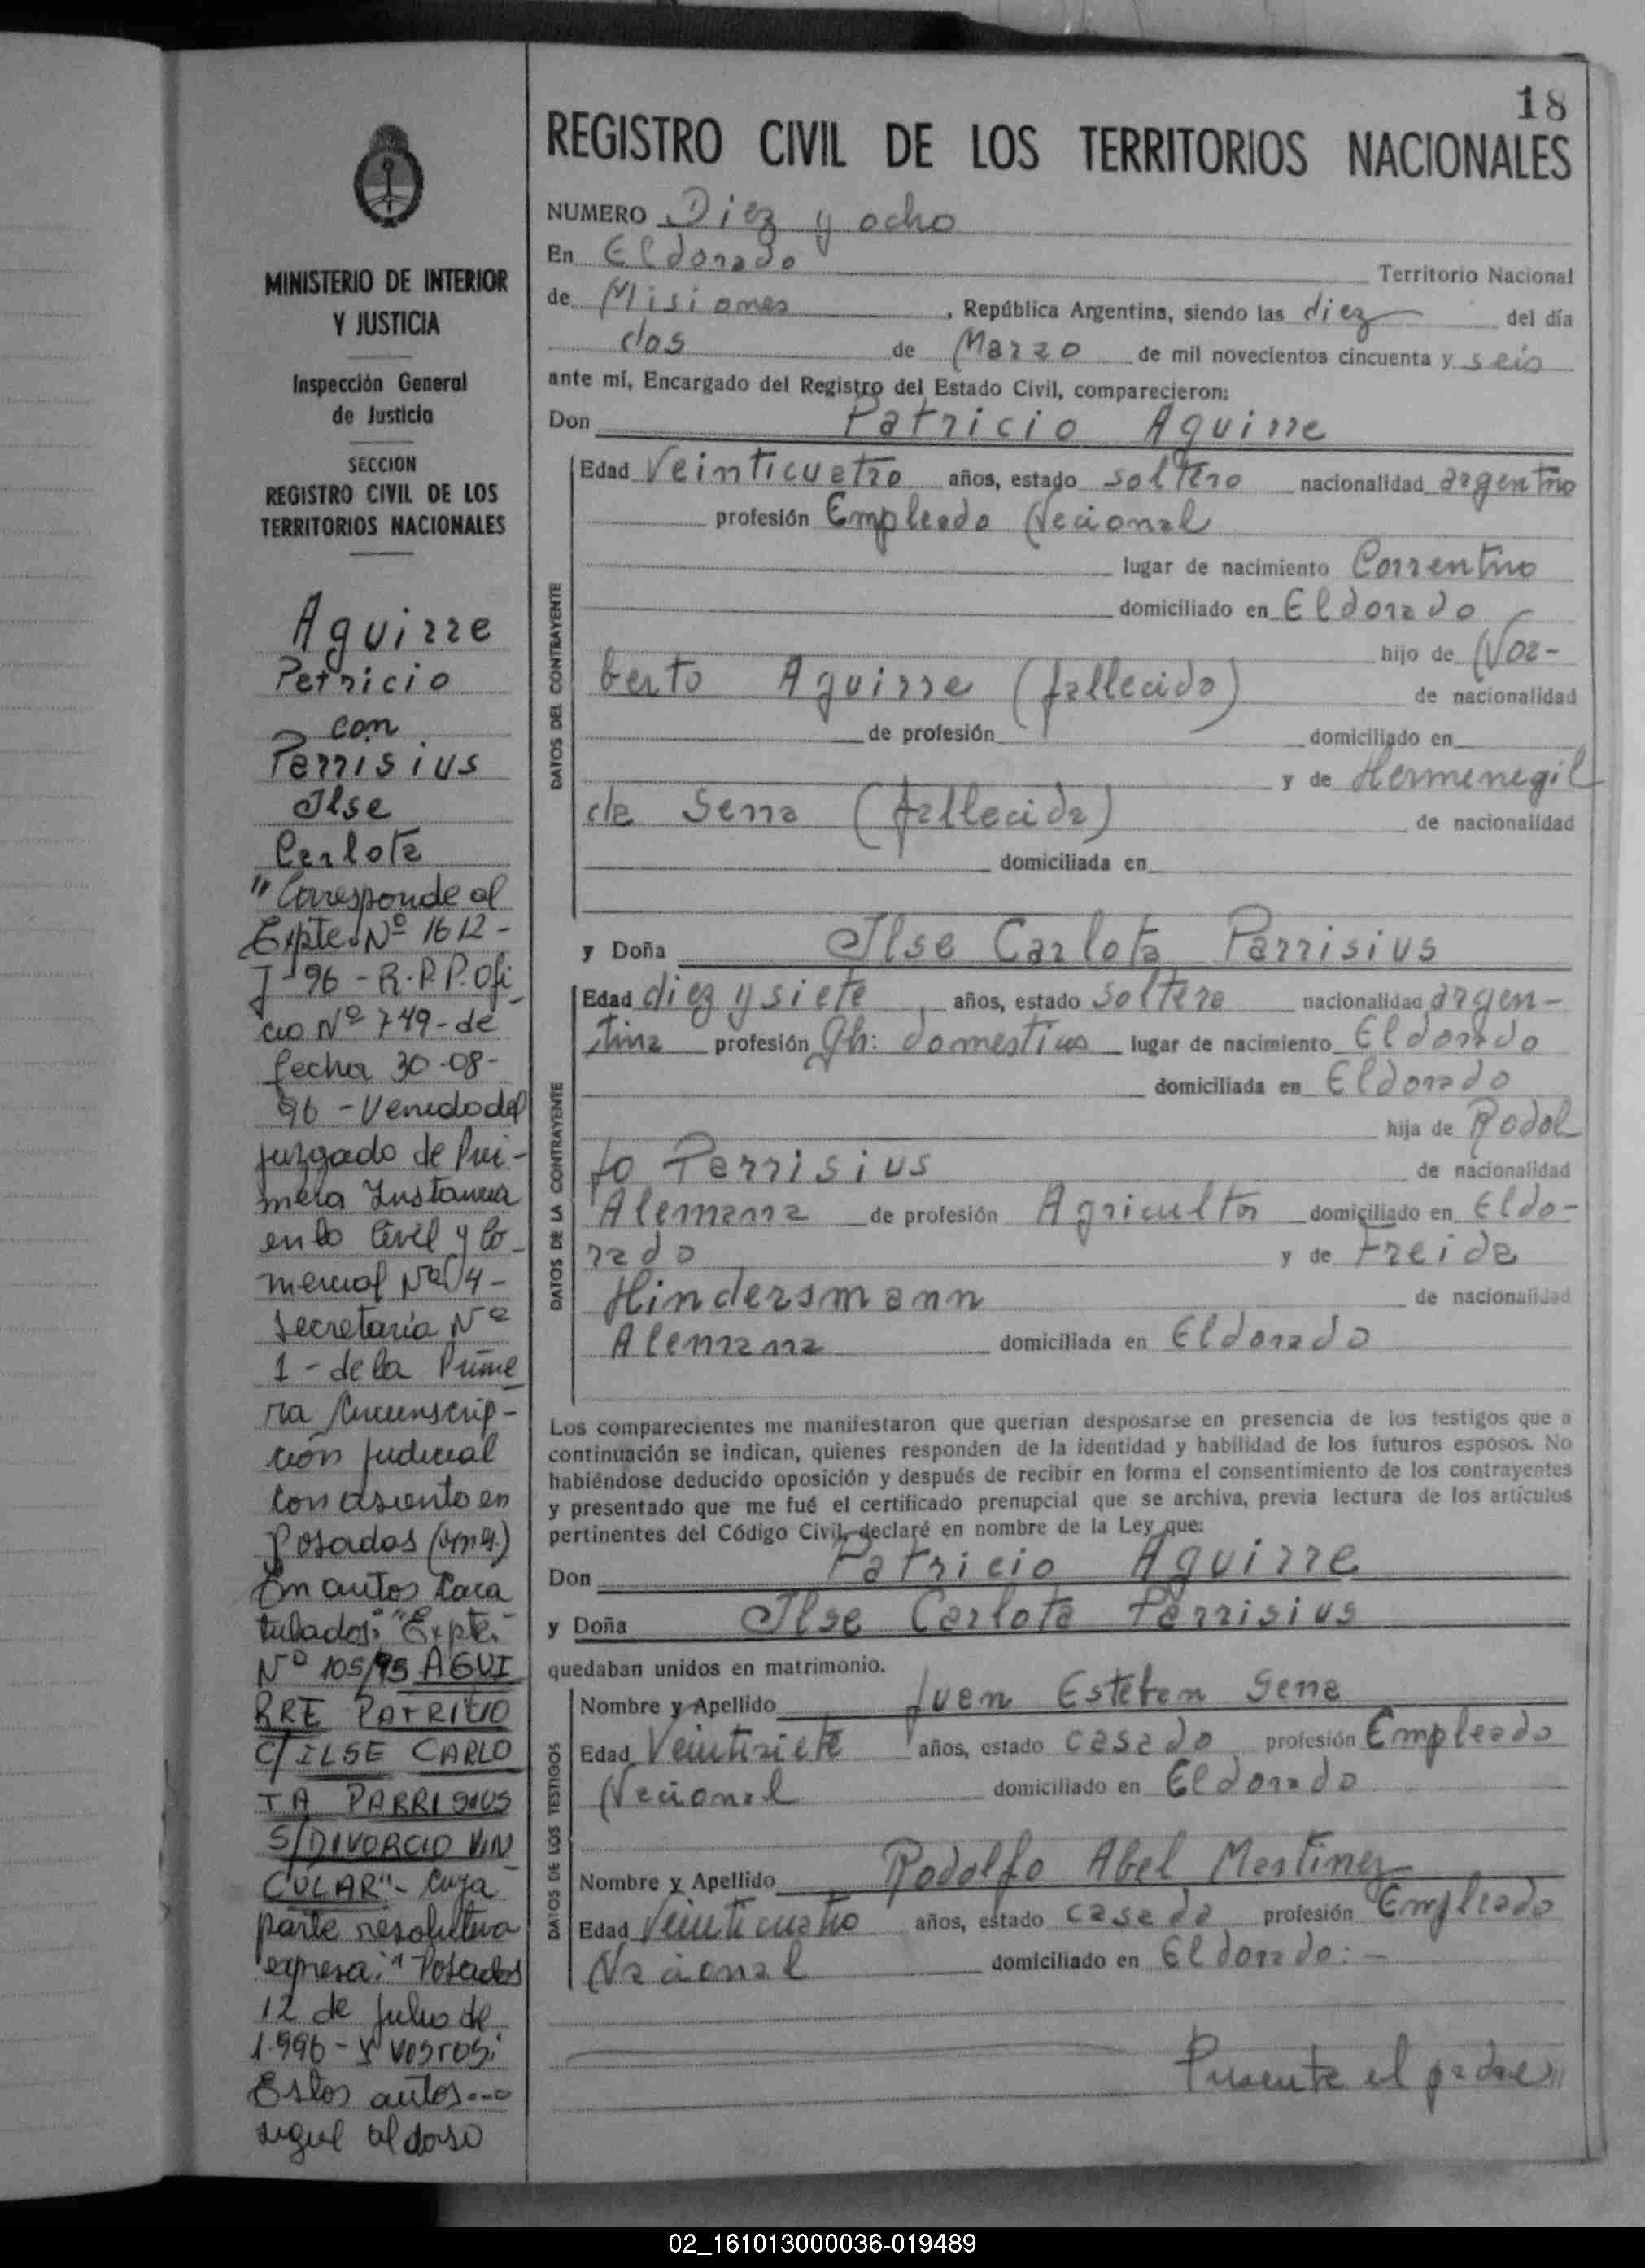 18
REGISTRO CIVIL DE LOS TERRITORIOS NACIONALES
NUMERO Diez y ocho
En Eldorado Territorio Nacional
de Misiones, República Argentina, siendo las diez del día
dos de Marzo de mil novecientos cincuenta y seis
ante mí, Encargado del Registro del Estado Civil, comparecieron:
Don Patricio Aguirre
DATOS DEL CONTRAYENTE
Edad Veinticuatro años, estado soltero nacionalidad argentino
profesión Empleado Nacional
lugar de nacimiento Correntino
domiciliado en Eldorado
hijo de Nor-
berto Aguirre (fallecido) de nacionalidad
de profesión domiciliado en
y de Hermenegil
da Serra (fallecida) de nacionalidad
domiciliada en
y Doña Ilse Carlota Parrisius
DATOS DE LA CONTRAYENTE
Edad diez y siete años, estado soltera nacionalidad argen-
tina profesión domesticos lugar de nacimiento Eldorado
domiciliada en Eldorado
hija de Rodol
fo Parrisius de nacionalidad
Alemana de profesión Agricultor domiciliado en Eldo-
rado y de Freida
Hindersmann de nacionalidad
Alemana domiciliada en Eldorado
Los comparecientes me manifestaron que querían desposarse en presencia de los testigos que a
continuación se indican, quienes responden de la identidad y habilidad de los futuros esposos. No
habiéndose deducido oposición y después de recibir en forma el consentimiento de los contrayentes
y presentado que me fué el certificado prenupcial que se archiva, previa lectura de los artículos
pertinentes del Código Civil, declaré en nombre de la Ley que:
Don Patricio Aguirre
y Doña Ilse Carlota Parrisius
quedaban unidos en matrimonio.
DATOS DE LOS TESTIGOS
Nombre y Apellido Juan Esteban Sena
Edad Veintisiete años, estado casado profesión Empleado
Nacional domiciliado en Eldorado
Nombre y Apellido Rodolfo Abel Martinez
Edad Veinticuatro años, estado casado profesión Empleado
Nacional domiciliado en Eldorado:-
Presente el padre
MINISTERIO DE INTERIOR
Y JUSTICIA
Inspección General
de Justicia
SECCION
REGISTRO CIVIL DE LOS
TERRITORIOS NACIONALES
Aguirre
Patricio
con
Parrisius
Ilse
Carlota
"Corresponde al
Expte. Nº 1612-
J-96-R.P.P. Ofi
cio Nº 749-de
fecha 30-08-
96-Venido del
juzgado de Pri-
mera Instancia
en lo Civil y Co-
mercial Nº 4-
Secretaría Nº
1-de la Prime
ra Circunscrip-
ción judicial
con asiento en
Posadas (Mnes.)
En autos Cara
tulados: "Expte.
Nº 105/95 AGUI
RRE PATRICIO
C/ILSE CARLO
TA PARRISIUS
S/DIVORCIO VIN
CULAR"- cuya
parte resolutiva
expresa: "Posadas
12 de Julio de
1.996-Y VISTOS:
Estos autos...
sigue al dorso
02_161013000036-019489